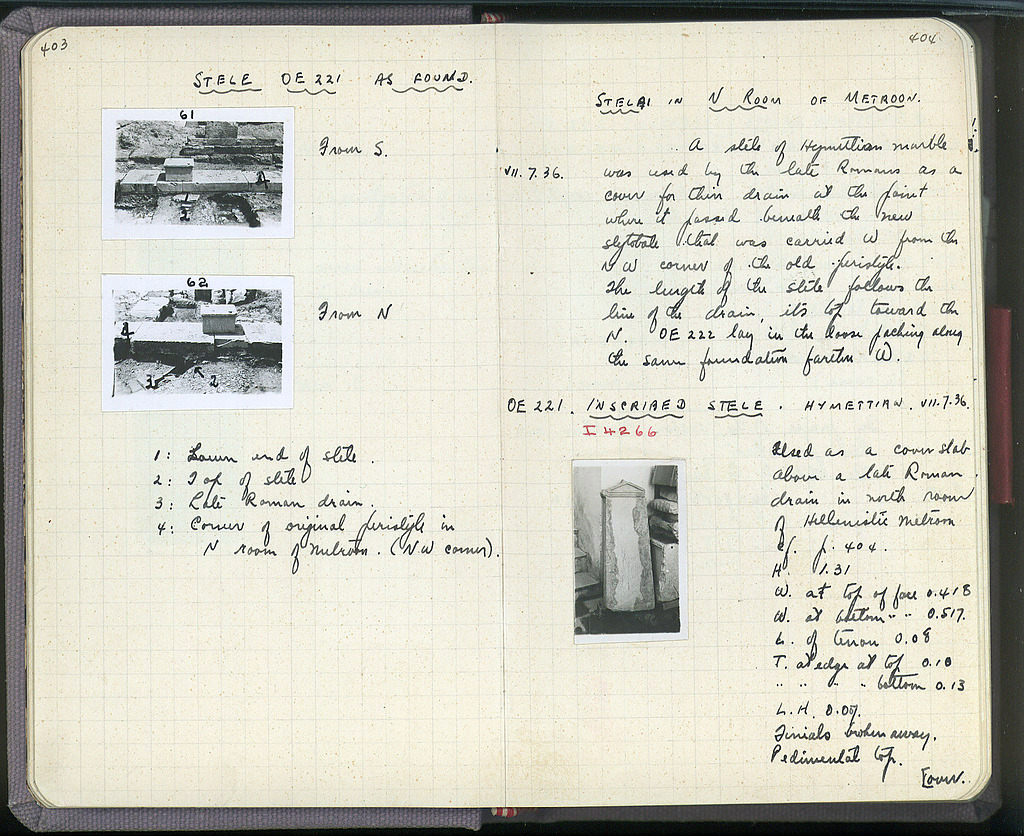 403
STELE OE 221 AS FOUND.
61
From S.
4
2
62
From N
4
3
2
1: Lower end of stele.
2: Top of stele
3: Late Roman drain.
4: Corner of original peristyle in
N room of Metroon. (NW corner).
404
STELAI IN N ROOM OF METROON.
A stele of Hymettian marble
VII.7.36. was used by the late Romans as a
cover for their drain at the point
where it passed beneath the new
stylobate that was carried W from the
NW corner of the old peristyle.
The length of the stele follows the
line of the drain, its top toward the
N. OE 222 lay in the loose packing along
the same foundation farther W.
OE 221. INSCRIBED STELE. HYMETTIAN. VII.7.36.
I 4266
Used as a cover slab
above a late Roman
drain in north room
of Hellenistic Metroon
cf. p. 404.
H. 1.31
W. at top of face 0.418
W. at bottom " " 0.517.
L. of tenon 0.08
T. at edge at top 0.10
" " " " bottom 0.13
L.H. 0.07.
Finials broken away.
Pedimental top.
[over.